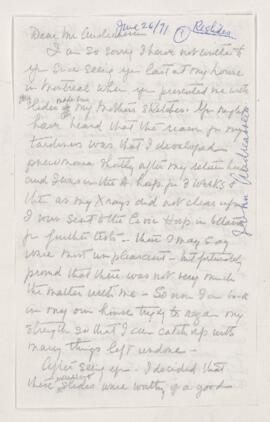 June 26/71 ① Re slides
Dear Mr Andreassen
I am so sorry I have not written to
you since seeing you last at my house
in Montreal when you presented me with
slides of my Mother's sketches. You might
have heard that the reason for my
tardiness was that I developed
pneumonia shortly after my return here
and I was in the hosp. for 3 weeks &
then as my Xrays did not clear up
I was sent to the Civic Hosp in Ottawa
for further tests - these I may say
were most unpleasant - but fortunately
proved that there was not very much
the matter with me - So now I am back
in my own house trying to regain my
strength so that I can catch up with
many things left undone -
After seeing you I decided that
these slides were worthy of a good
John Andreassen